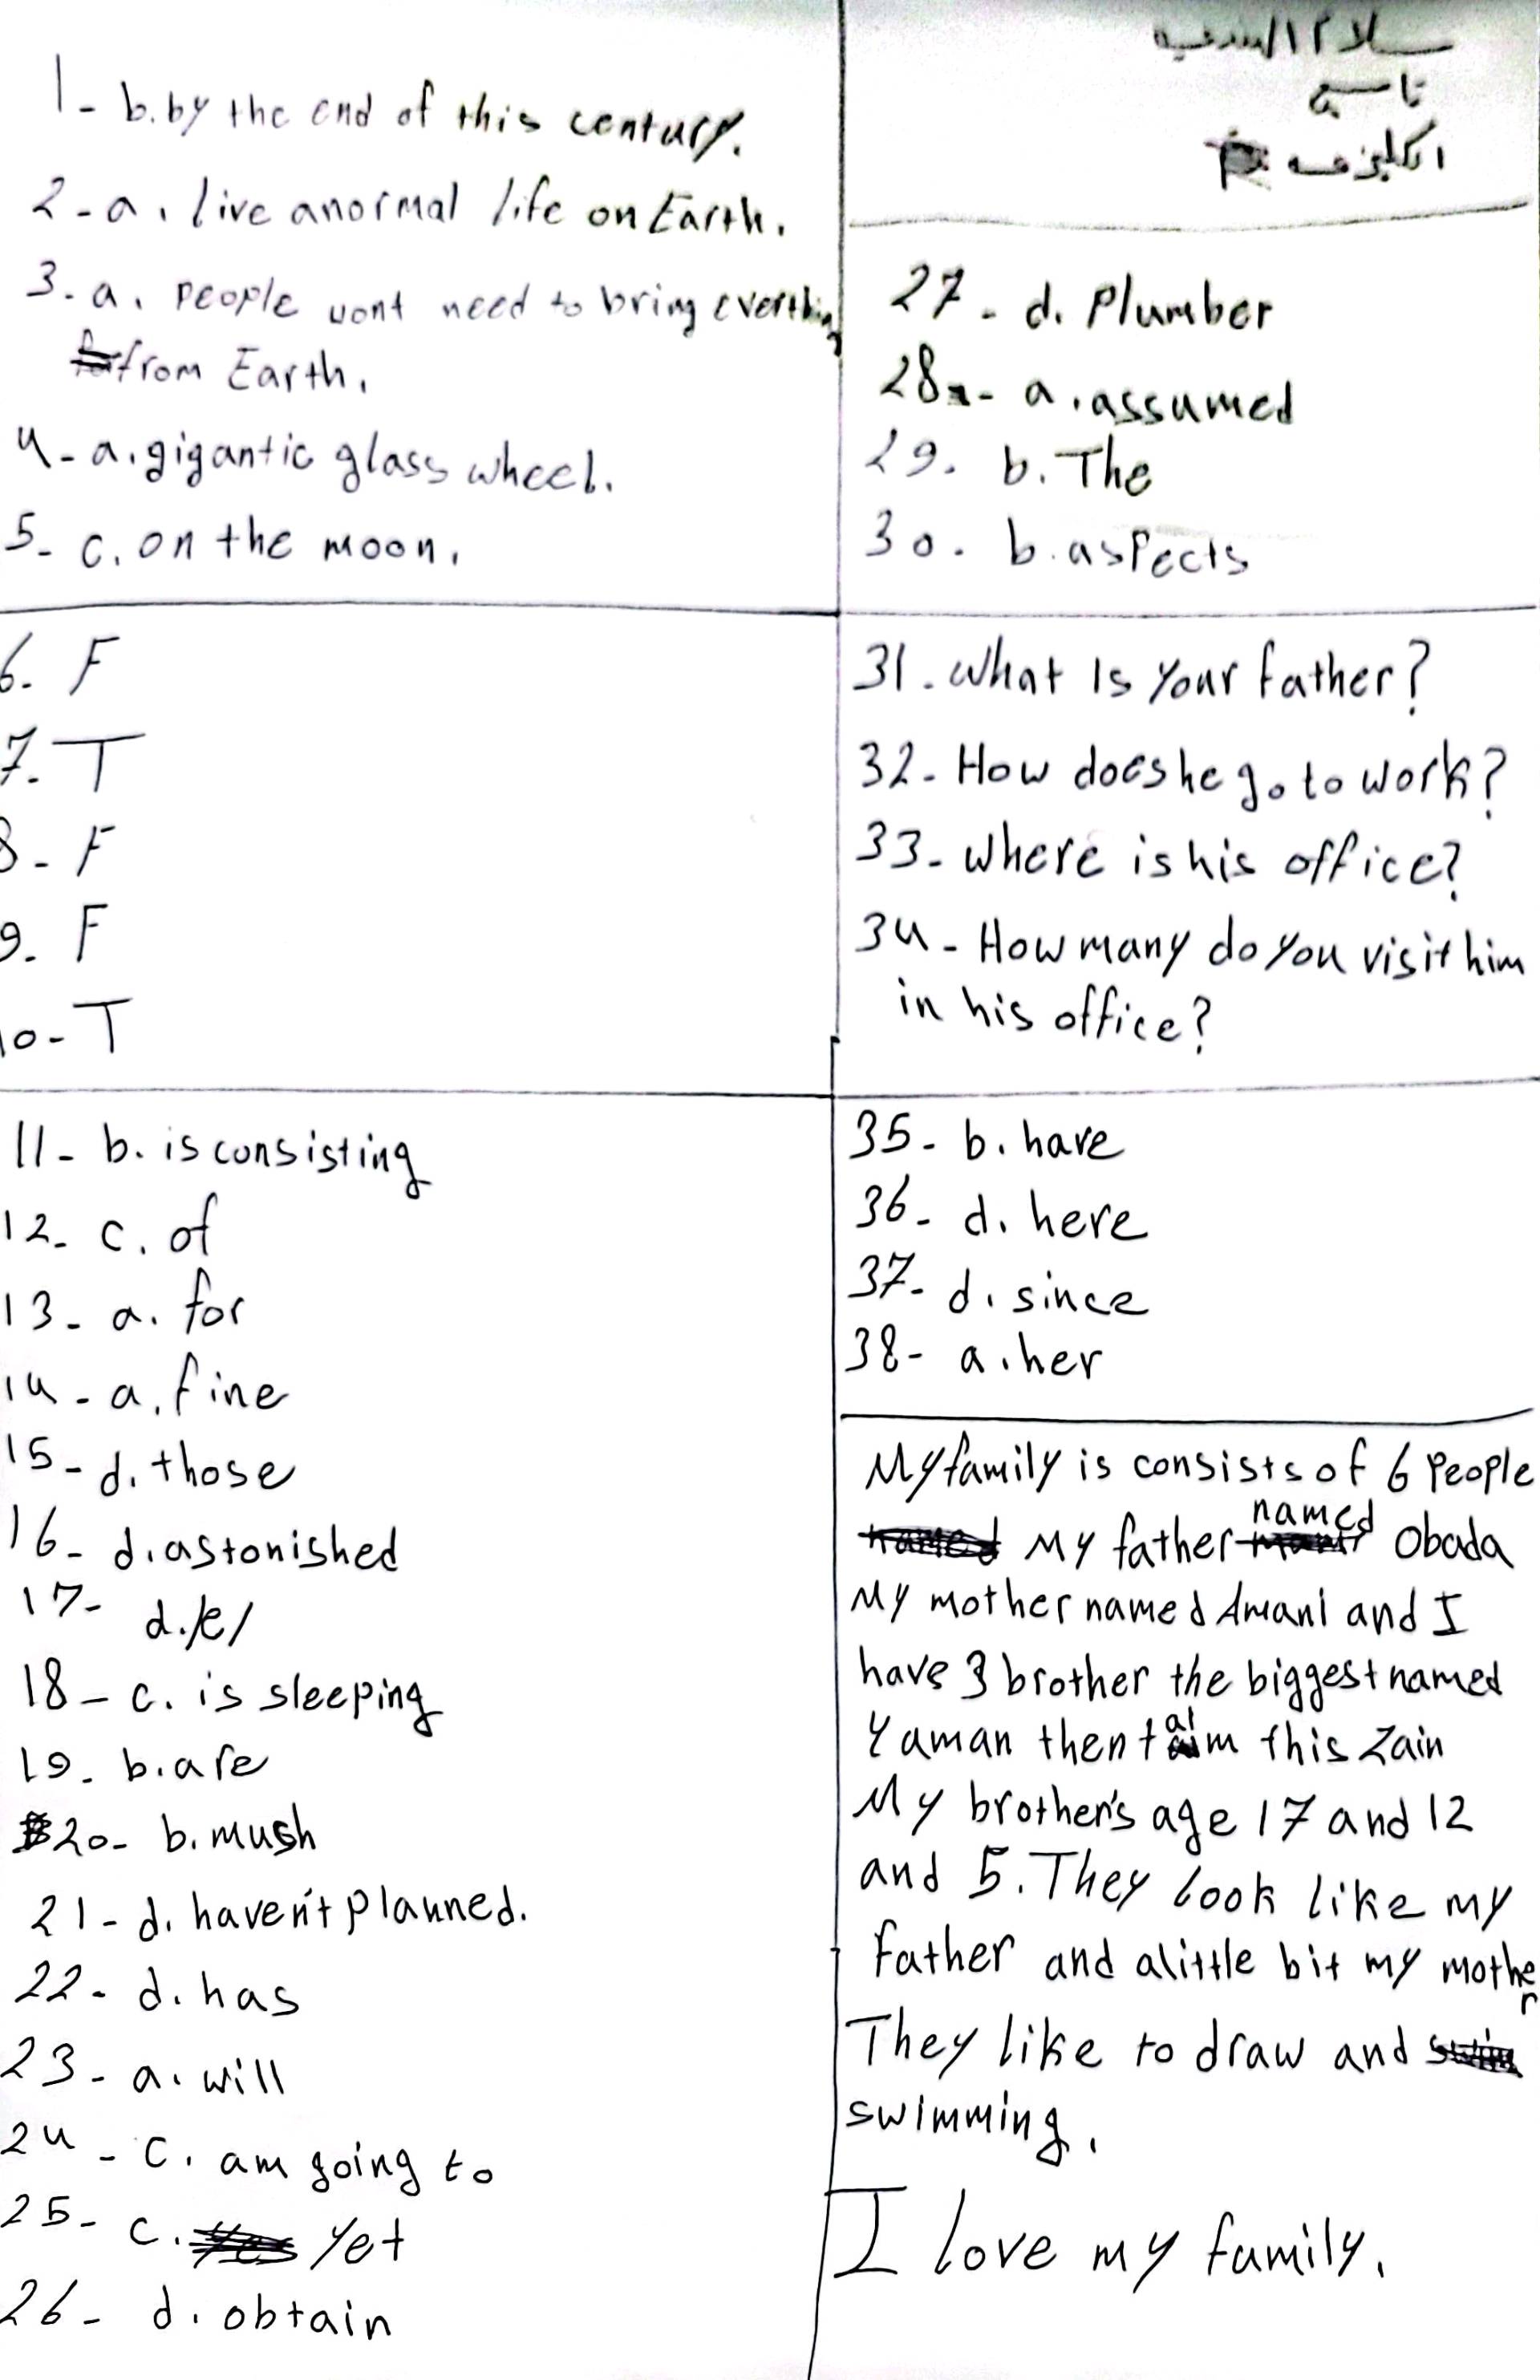 1- b. by the end of this century.
2- a. live anormal life on Earth.
3- a. people wont need to bring everthing
from Earth.
4- a. gigantic glass wheel.
5- c. on the moon.
6. F
7. T
8- F
9. F
10- T
11- b. is consisting
12- c. of
13- a. for
14- a. fine
15- d. those
16- d. astonished
17- d. /e/
18- c. is sleeping
19- b. are
20- b. mush
21- d. haven't planned.
22- d. has
23- a. will
24- c. am going to
25- c. yet
26- d. obtain
سلام
تاسع
27- d. Plumber
28- a. assumed
29. b. The
30. b. aspects
31. What Is your father?
32- How does he go to work?
33- where is his office?
34- How many do you visit him
in his office?
35- b. have
36- d. here
37- d. since
38- a. her
My family is consists of 6 People
My father named Obada
My mother named Amani and I
have 3 brother the biggest named
Yaman then taim this Zain
My brother's age 17 and 12
and 5. They look like my
father and alittle bit my mother
They like to draw and
swimming.
I love my family.